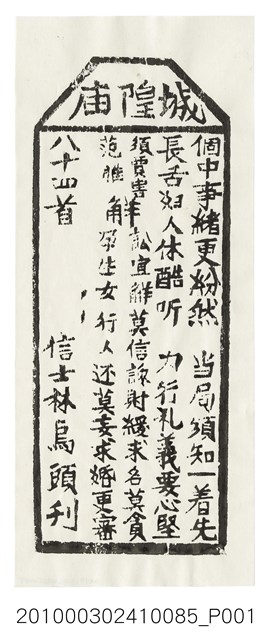 城隍庙
個中事緒更紛然 当局須知一着先
長舌妇人休酷听 力行礼義要心堅
須賈害
范雎
觧
訟宜觧莫信讒財緩求名莫貪
孕生女行人还莫妄求婚更審
八十四首 信士林烏頭刋
201000302410085_P001